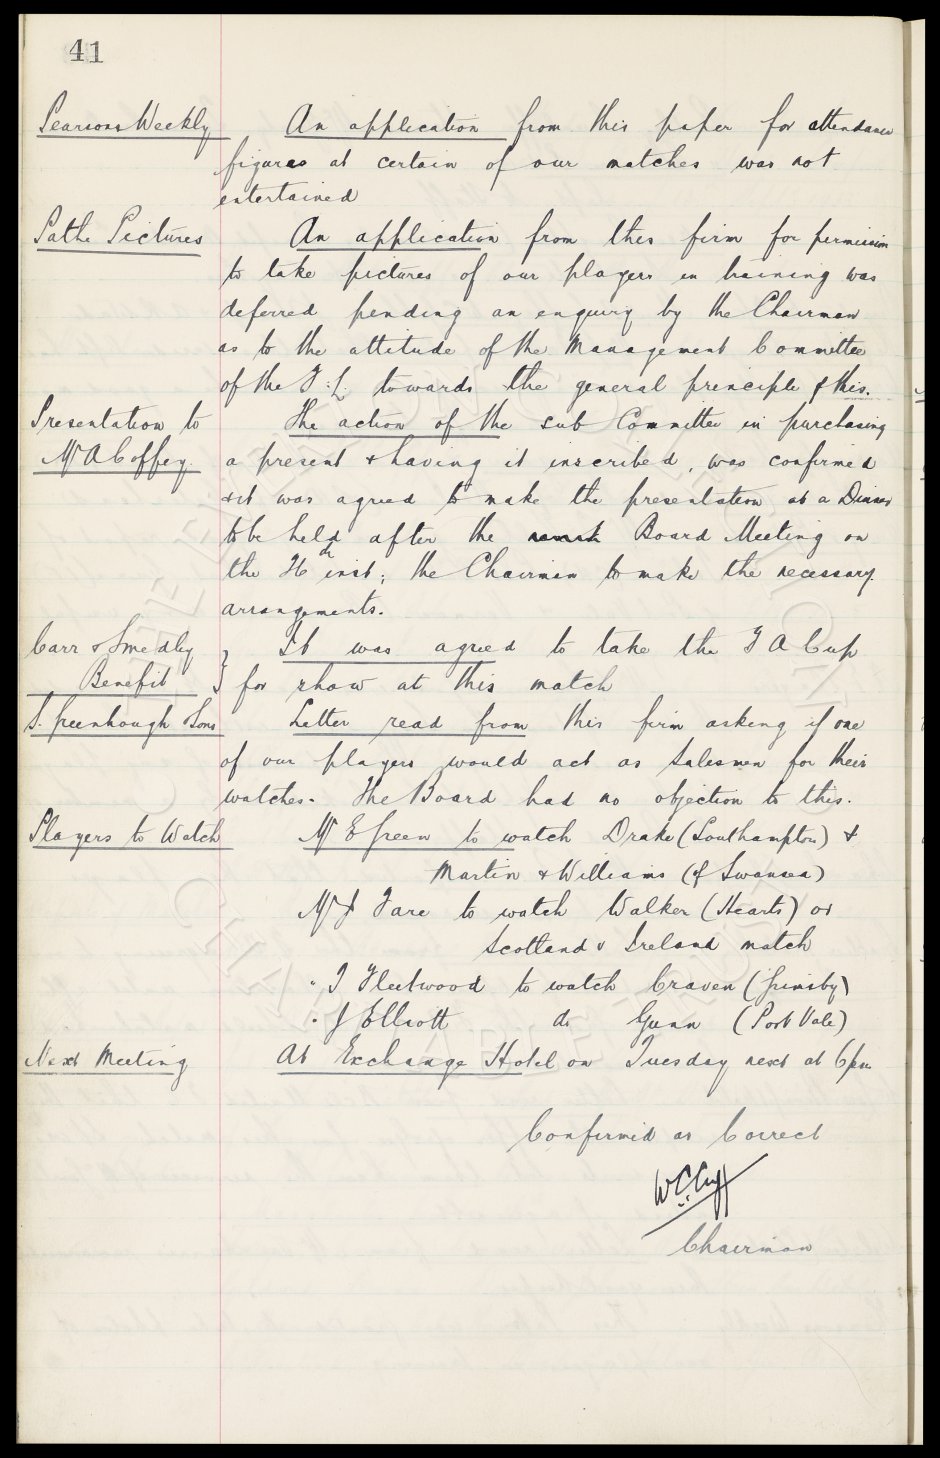 41
Pearsons Weekly An application from this paper for attendance
figures at certain of our matches was not
entertained
Pathe Pictures An application from this firm for permission
to take pictures of our players in training was
deferred pending an enquiry by the Chairman
as to the attitude of the Management Committee
of the F.L. towards the general principle of this.
Presentation to The action of the sub Committee in purchasing
Mr A Coffey a present & having it inscribed, was confirmed
& it was agreed to make the presentation at a Dinner
to be held after the Board Meeting on
the inst; the Chairman to make the necessary
arrangements.
Carr & Smedley } It was agreed to take the F A Cup
Benefit } for show at this match
S. Greenhough & Sons Letter read from this firm asking if one
of our players would act as Salesmen for their
watches. The Board had no objection to this.
Players to Watch Mr E Green to watch Drake (Southampton) &
Martin & Williams (of Swansea)
Mr J Fare to watch Walker (Hearts) at
Scotland v Ireland match
" T Fleetwood to watch Craven (Grimsby)
" J Elliott do Gunn (Port Vale)
Next Meeting At Exchange Hotel on Tuesday next at 6pm
Confirmed as Correct
W C Cuff
Chairman